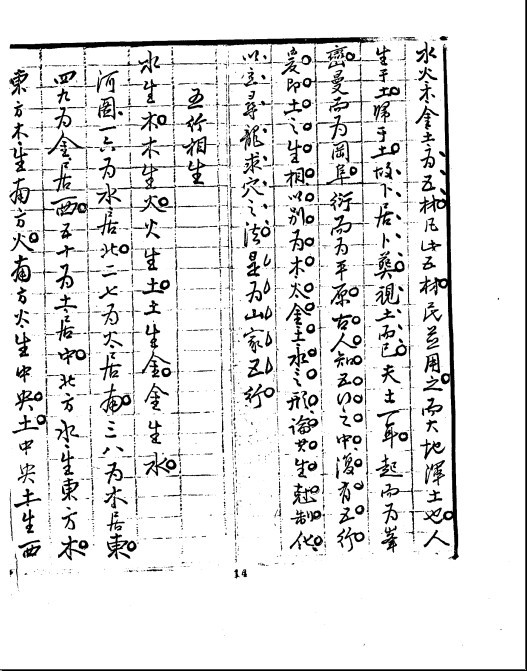 水火木金土為五材凡此五材民並用之而大地渾土也人
生于土歸于土故卜居卜葬視土而已夫土一年起而為峯
巒曼而為岡阜衍而為平原古人知五行之中復有五行
爰即土之生相以別為木火金土水之形論其生尅制化
以定尋龍求穴之法是為山家五行
五行相生
水生木木生火火生土土生金金生水
河圖一六為水居北二七為火居南三八為木居東
四九為金居西五十為土居中北方水生東方木
東方木生南方火南方火生中央土中央土生西
14